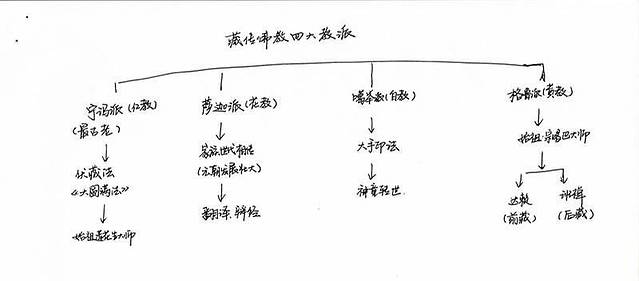 藏传佛教四大教派
宁玛派(红教)
(最古老)
伏藏法
《大圆满法》
始祖莲花生大师
萨迦派(花教)
家族世代相传
(元朝发展壮大)
翻译.辩经
噶举教(白教)
大手印法
神童轻世.
格鲁派(黄教)
始祖:宗喀巴大师
达赖
(前藏)
班禅
(后藏)